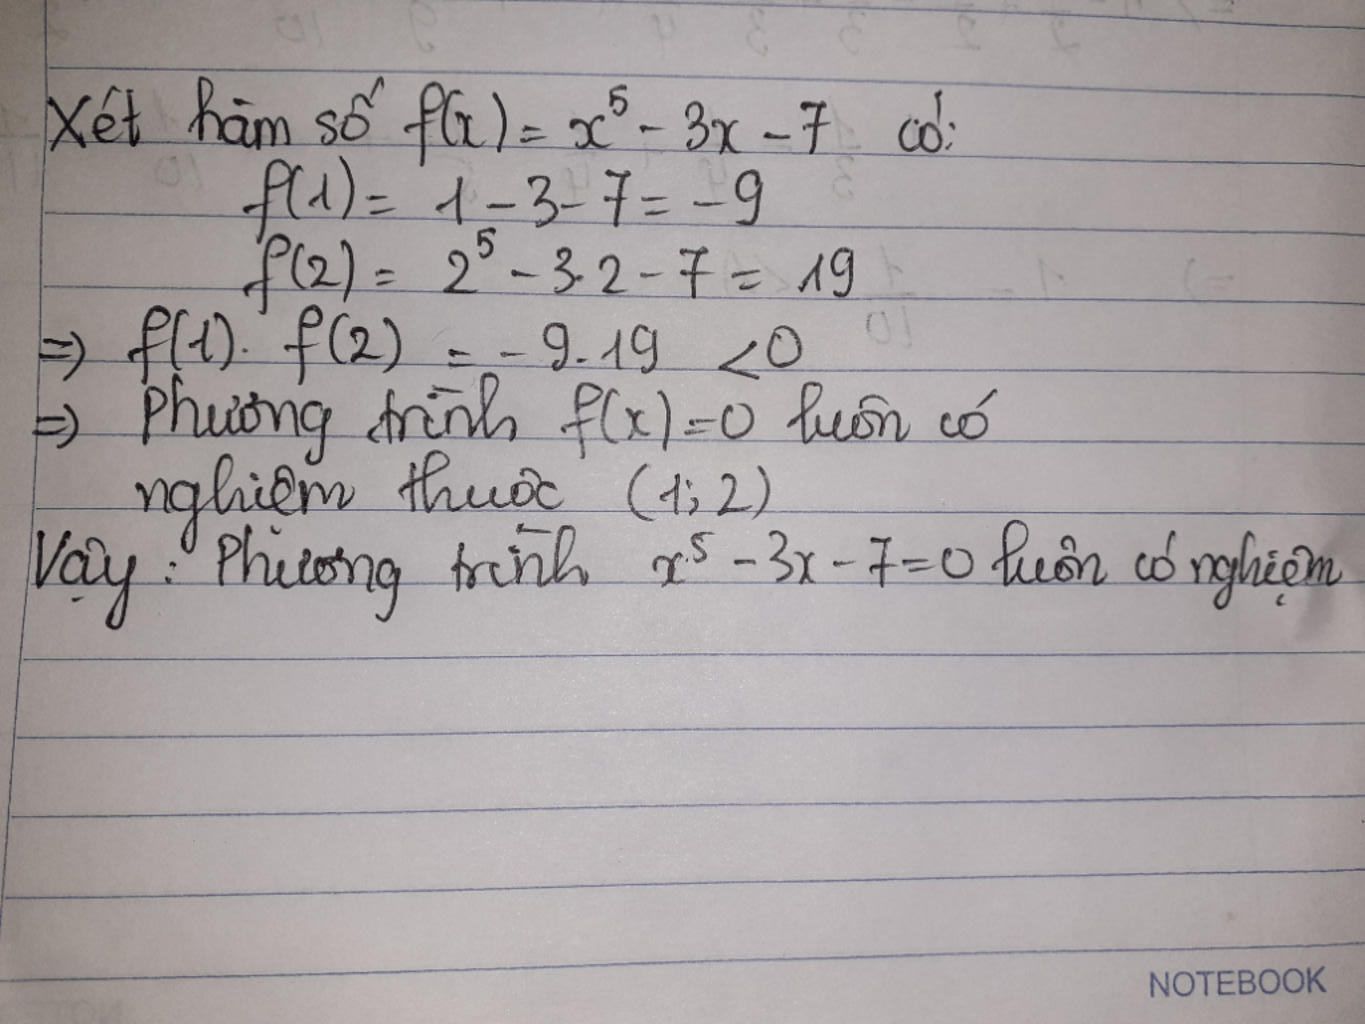 Xét hàm số f(x) = x⁵ - 3x - 7 có:
f(1) = 1 - 3 - 7 = -9
f(2) = 2⁵ - 3.2 - 7 = 19
=> f(1). f(2) = - 9.19 < 0
=> Phương trình f(x) = 0 luôn có
nghiệm thuộc (1; 2)
Vậy: Phương trình x⁵ - 3x - 7 = 0 luôn có nghiệm
NOTEBOOK